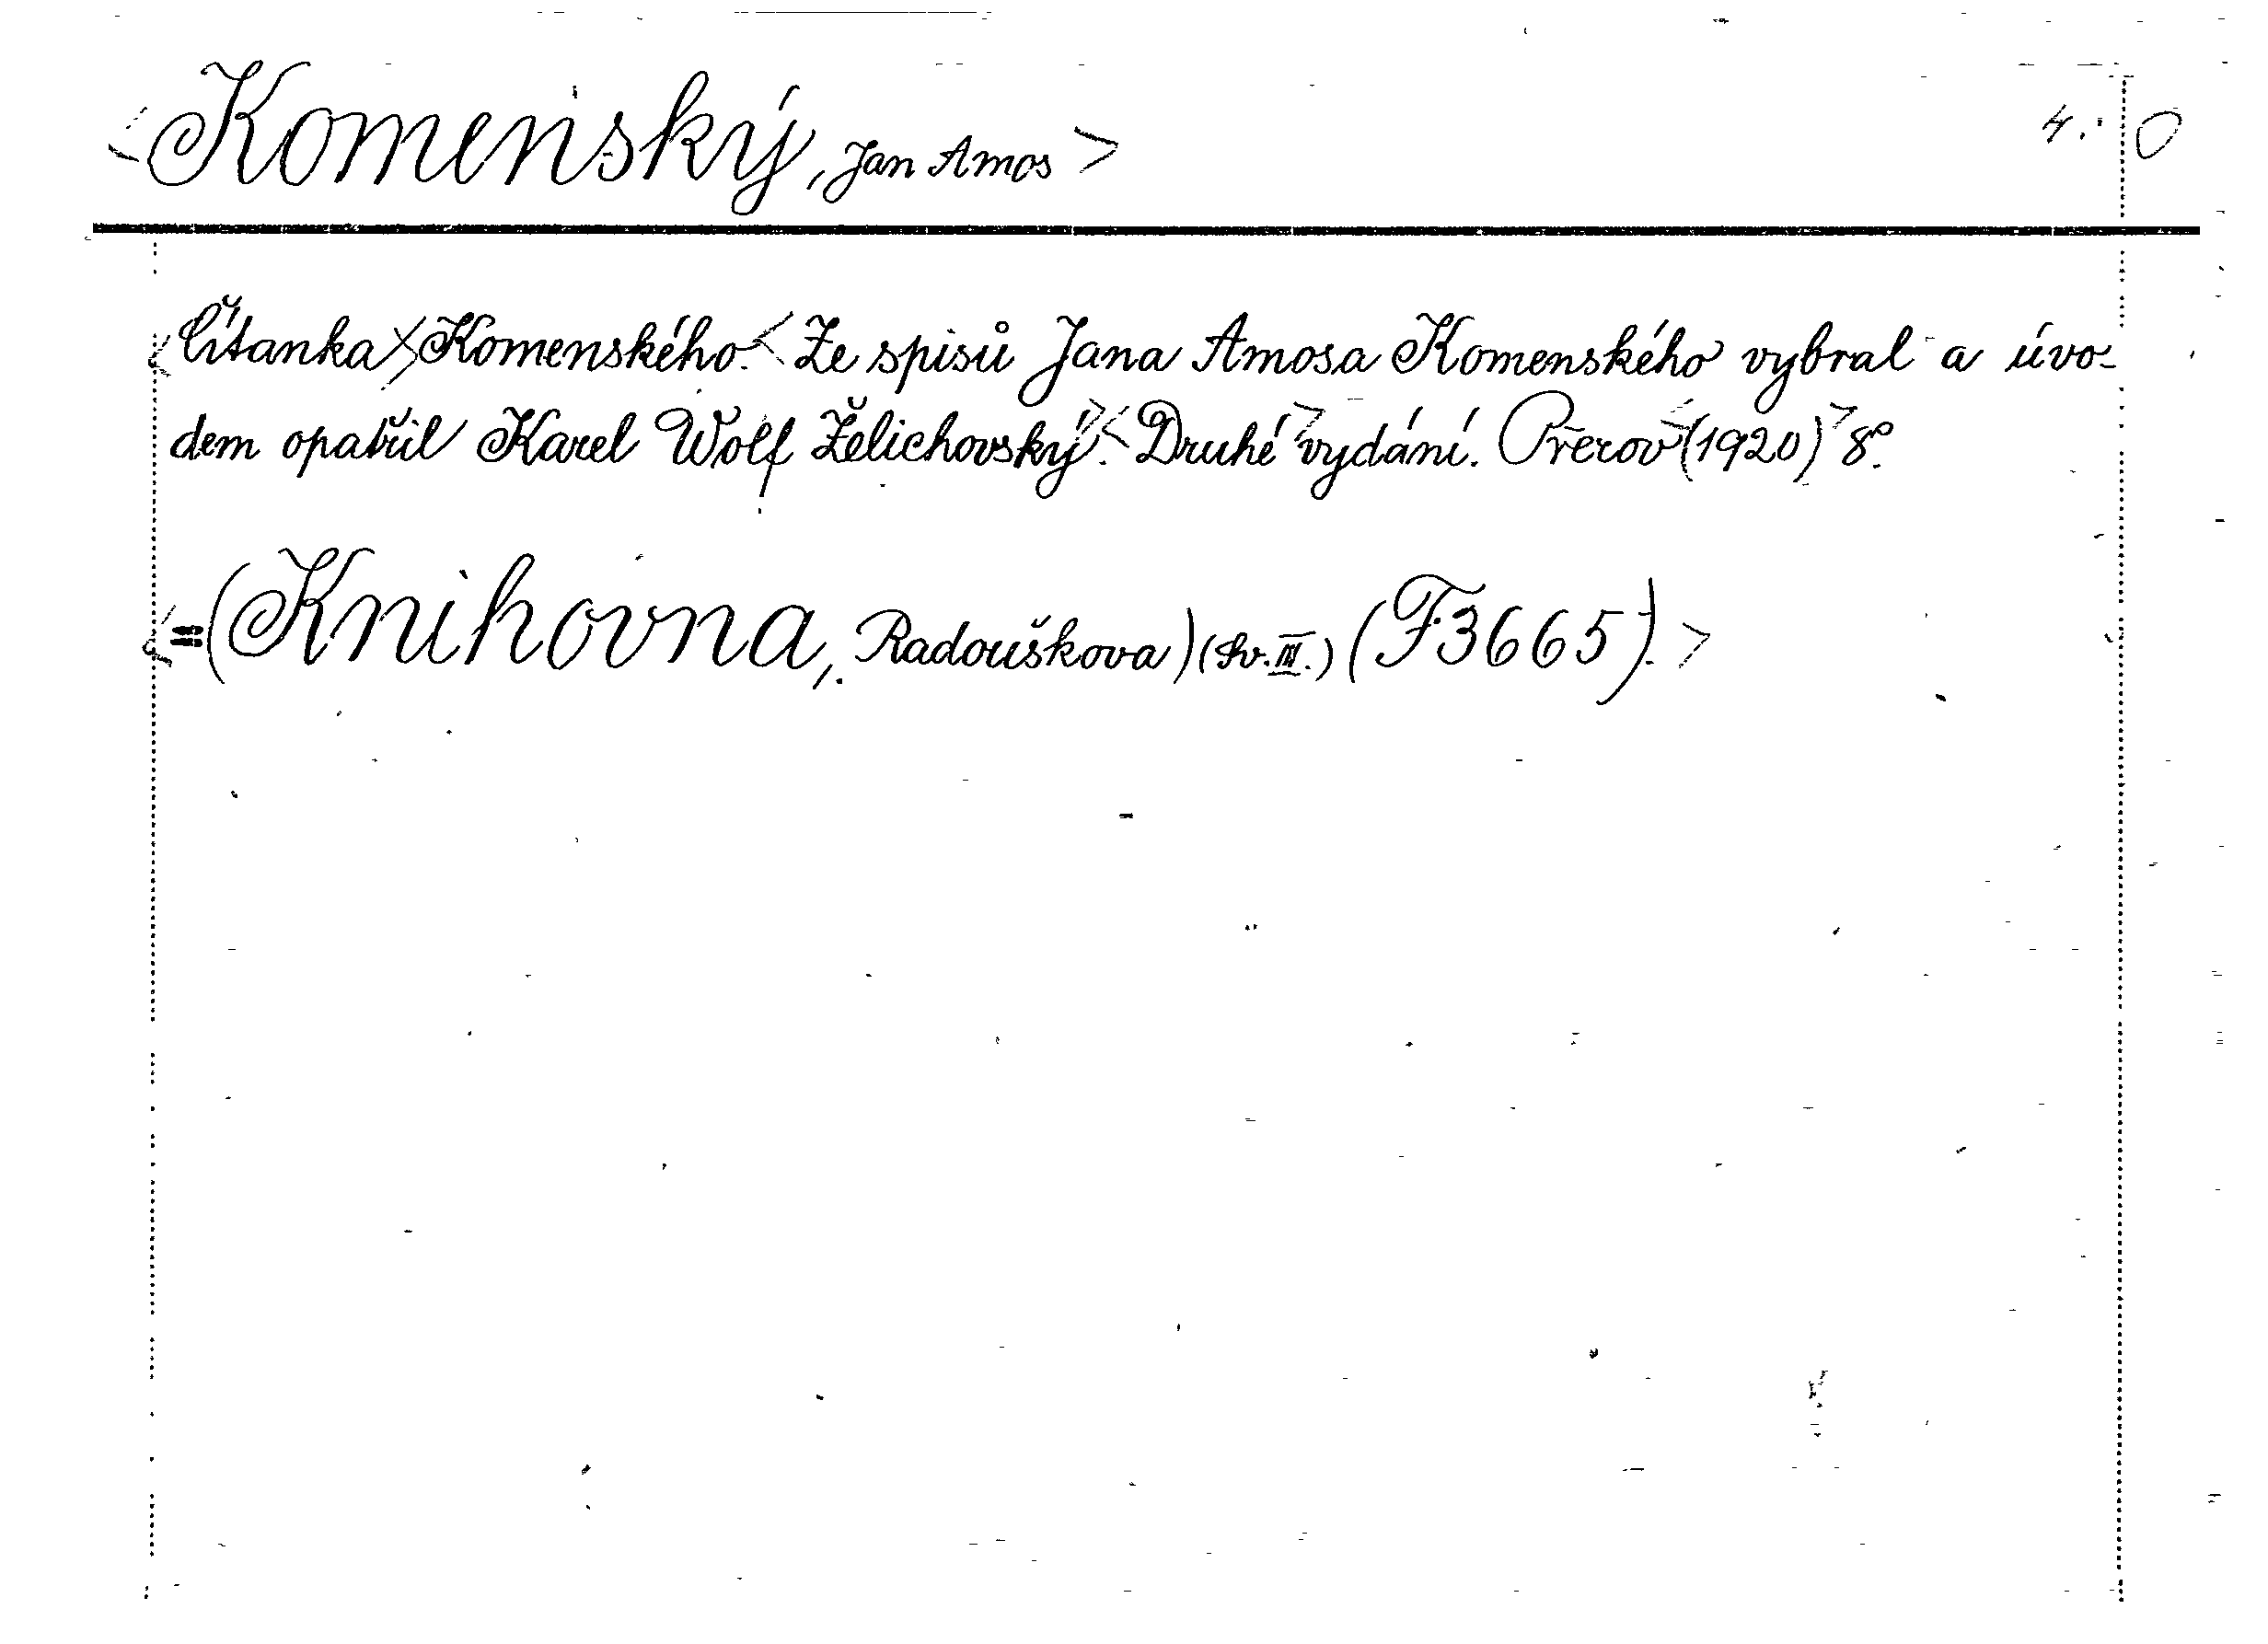 <Komenský, Jan Amos> 4. 0
<Čítanka><Komenského.< Ze spisů Jana Amosa Komenského vybral a úvo-
dem opatřil Karel Wolf Želichovský.><Druhé> vydání. Přerov<(1920)>8°.
<=(Knihovna, Radouškova) (Sv. III.) (F3665).>